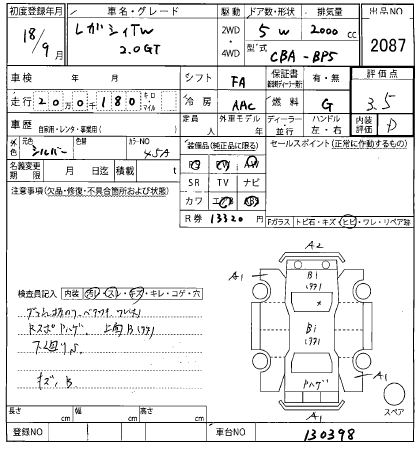 初度登録年月 車名・グレード 駆動 ドア数・形状 排気量 出品NO
18/9月 レガシィTW 2.0GT 2WD 4WD 5W 2000cc 2087
型式 CBA-BP5
車検 年 月 シフト FA 保証書 有・無 評価点
走行 20万0千180 キロ・マイル 冷房 AAC 燃料 G 3.5
車歴 自家用・レンタ・事業用( ) 定員 人 外車モデル 年 ディーラー・並行 ハンドル 左・右 内装評価 D
外色 元色 シルバー 色替 カラーNO 45A 装備品(純正品に限る) セールスポイント(正常に作動するもの)
名義変更期限 月 日迄 積載 t
SR TV ナビ
注意事項(欠品・修復・不具合箇所および状態) カワ エアB ABS
R券 13320 円 Fガラス トビ石・キズ・ヒビ・ワレ・リペア跡
A2
A1
B1
検査員記入 内装 汚れ・スレ・キズ・キレ・コゲ・穴
Bi
下廻りS
キズ、B
ハゲ
A1
A1
スペア
長さ cm 幅 cm 高さ cm
登録NO 車台NO 130398